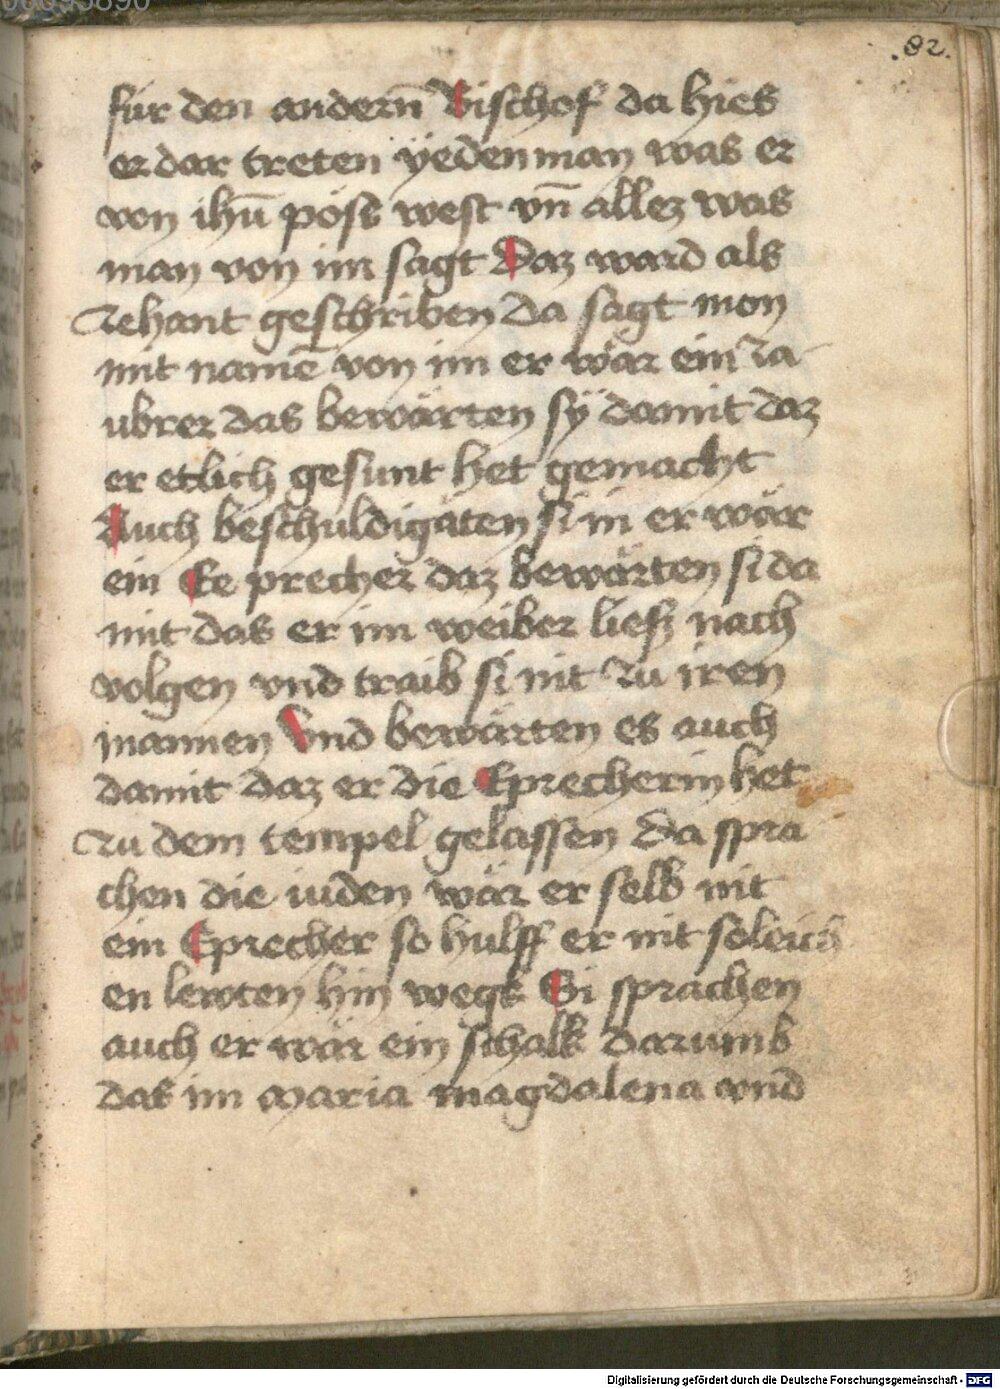 .82.
für den andern̄ Bischof da hies
er dar treten yedenman was er
von ihū pöss west vn̄ allez was
man von im sagt Daz ward als
zehant geschriben Da sagt man
mit namē von im er wär ein za
ubrer das bewärten sÿ damit daz
er etlich gesunt het gemacht
Auch beschuldigäten si in er wär
ein Ee precher daz bewärten si da
mit das er im weiber liesz nach
volgen vnd traib si nit zu iren
mannen Vnd bewärten es auch
damit daz er die Eprecherin het
zu dem tempel gelassen Da spra
chen die iuden wär er selb nit
ein Eprecher so hulff er nit soleich
en lewten hin wegk Si sprachen
auch er wär ein schalk darumb
das im maria magdalena vnd
Digitalisierung gefördert durch die Deutsche Forschungsgemeinschaft - DFG